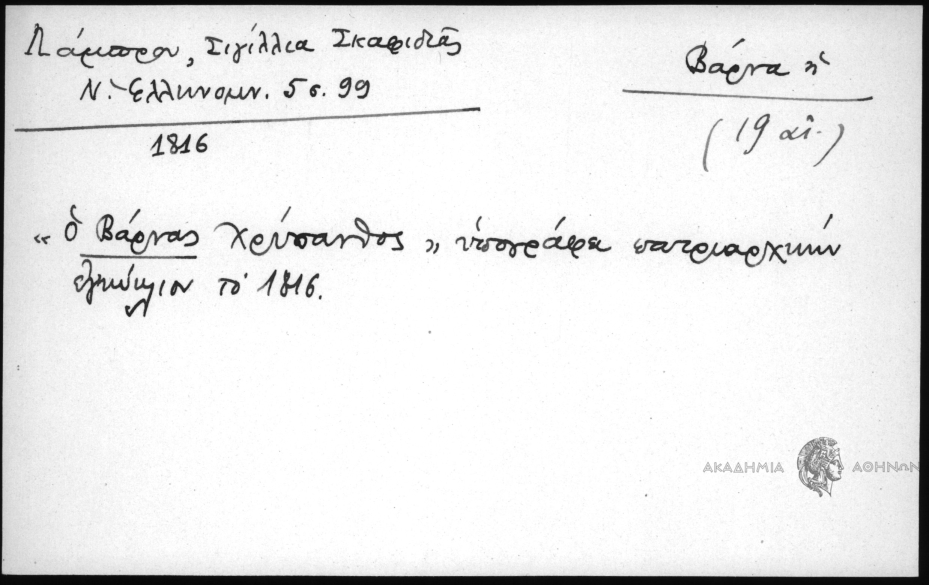 Λάμπρου, Σιγίλλια Σκαφιδιᾶς
Ν. Ἑλληνομν. 5 σ. 99
1816
Βάρνα ἡ
(19 αἰ.)
« ὁ Βάρνας Χρύσανθος » ὑπογράφει πατριαρχικὴν
ἐγκύκλιον τὸ 1816.
ΑΚΑΔΗΜΙΑ ΑΘΗΝΩΝ